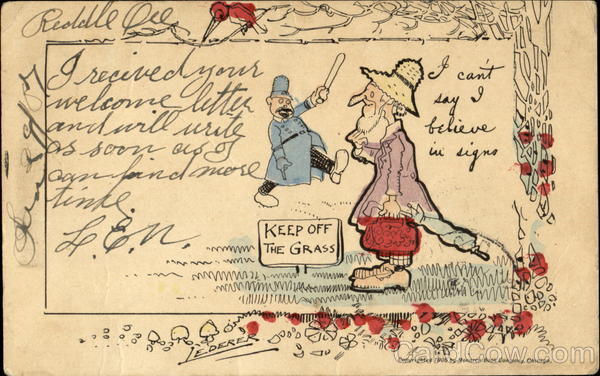 Riddle Dee
I recived your
welcome letter
and will write
as soon as I
can find more
time.
L.E.N.
I can't
say I
believe
in signs
KEEP OFF
THE GRASS
LEDERER
Copyrighted 1906 by Monarch Book Company, Chicago.
CardCow.com